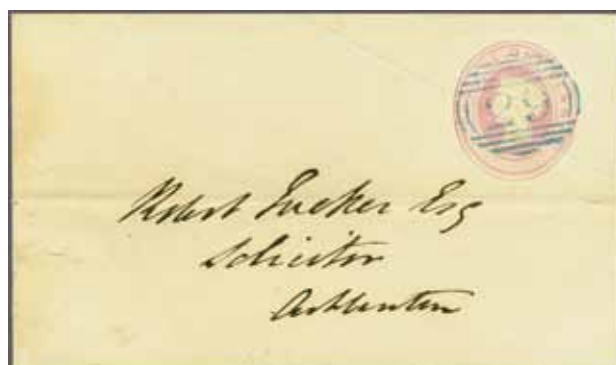 Robert Tucker Esq
Solicitor
Ashburton